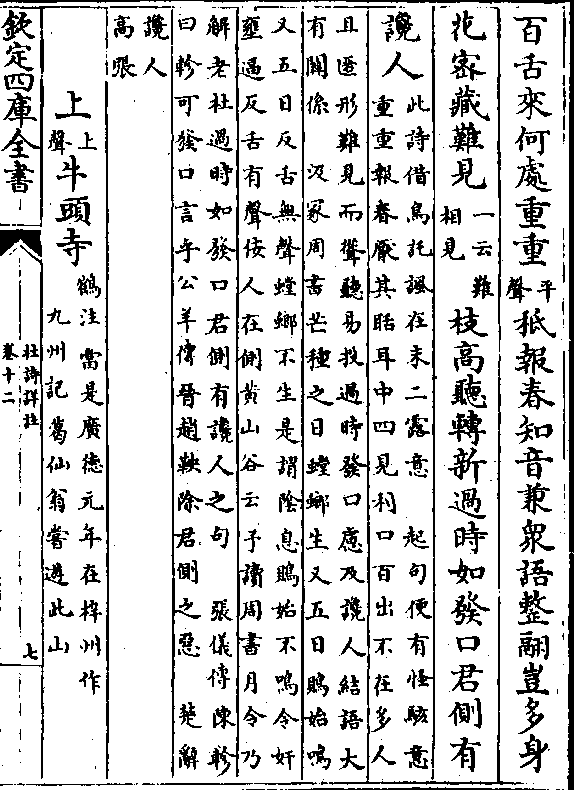 百舌來何處重重平聲秪報春知音兼衆語整翮豈多身
花密藏難見一云難相見枝高聽轉新過時如發口君側有
讒人此詩借鳥託諷在末二露意 起句便有怪駭意
重重報春厭其聒耳中四見利口百出不在多人
且匿形難見而聲聽易投過時發口應及讒人結語大
有關係 汲冢周書芒種之日螳螂生又五日鵙始鳴
又五日反舌無聲螳螂不生是謂陰息鵙始不鳴令奸
壅逼反舌有聲佞人在側黄山谷云予讀周書月令乃
解老杜過時如發口君側有讒人之句 張儀傳陳軫
曰軫可發口言乎公羊傳晉趙鞅除君側之惡 楚辭
讒人
高張
上上聲牛頭寺鶴注當是廣德元年在梓州作
九州記葛仙翁嘗遊此山
欽定四庫全書
杜詩詳註
卷十二
七